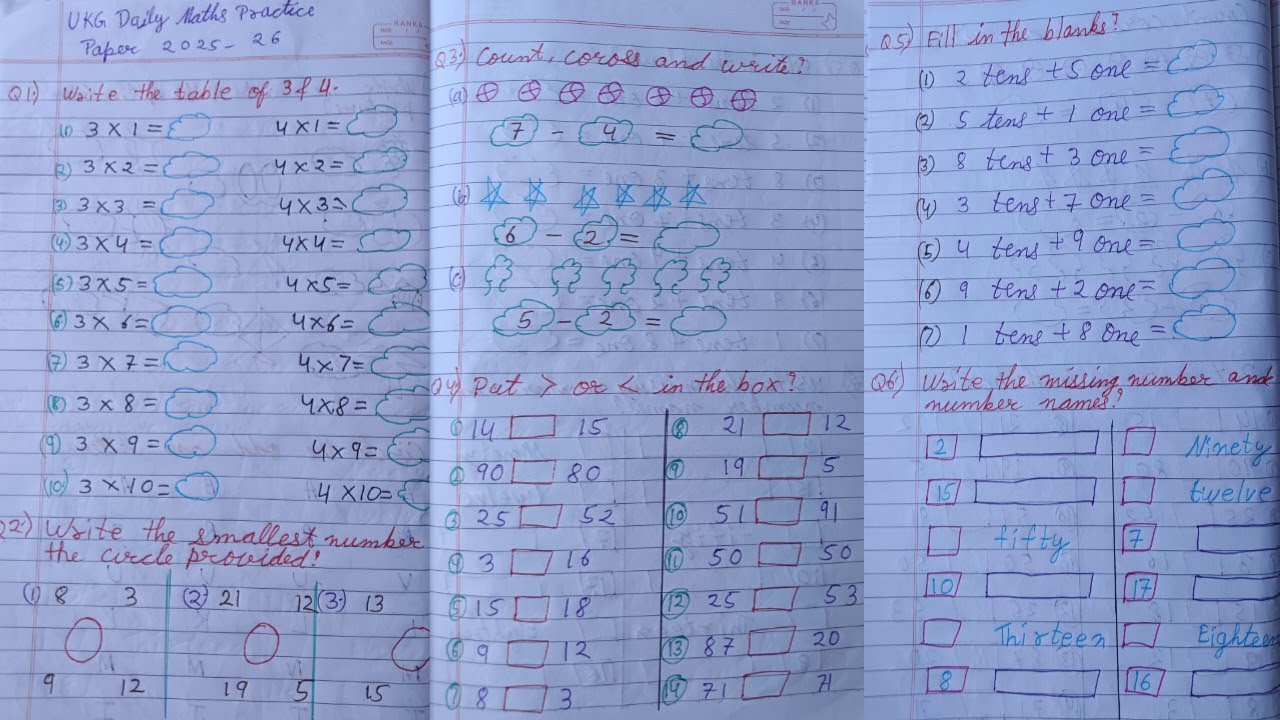 UKG Daily Maths Practice
Paper 2025-26
Q1) Write the table of 3 & 4.
(1) 3 X 1 = 4 X 1 =
(2) 3 X 2 = 4 X 2 =
(3) 3 X 3 = 4 X 3 =
(4) 3 X 4 = 4 X 4 =
(5) 3 X 5 = 4 X 5 =
(6) 3 X 6 = 4 X 6 =
(7) 3 X 7 = 4 X 7 =
(8) 3 X 8 = 4 X 8 =
(9) 3 X 9 = 4 X 9 =
(10) 3 X 10 = 4 X 10 =
Q2) Write the smallest number
the circle provided!
(1) 8 3 (2) 21 12 (3) 13
9 12 19 5 15
RANKA
Q3) Count, coross and write?
(a)
7 - 4 =
(b)
6 - 2 =
(c)
5 - 2 =
Q4) Put > or < in the box?
(1) 14 15 (8) 21 12
(2) 90 80 (9) 19 5
(3) 25 52 (10) 51 91
(4) 3 16 (11) 50 50
(5) 15 18 (12) 25 53
(6) 9 12 (13) 87 20
(7) 8 3 (14) 71 71
RANKA
Q5) Fill in the blanks?
(1) 2 tens + 5 one =
(2) 5 tens + 1 one =
(3) 8 tens + 3 one =
(4) 3 tens + 7 one =
(5) 4 tens + 9 one =
(6) 9 tens + 2 one =
(7) 1 tens + 8 one =
Q6) Write the missing number and
number names?
2 Ninety
15 twelve
fifty 7
10 17
Thirteen Eighteen
8 16